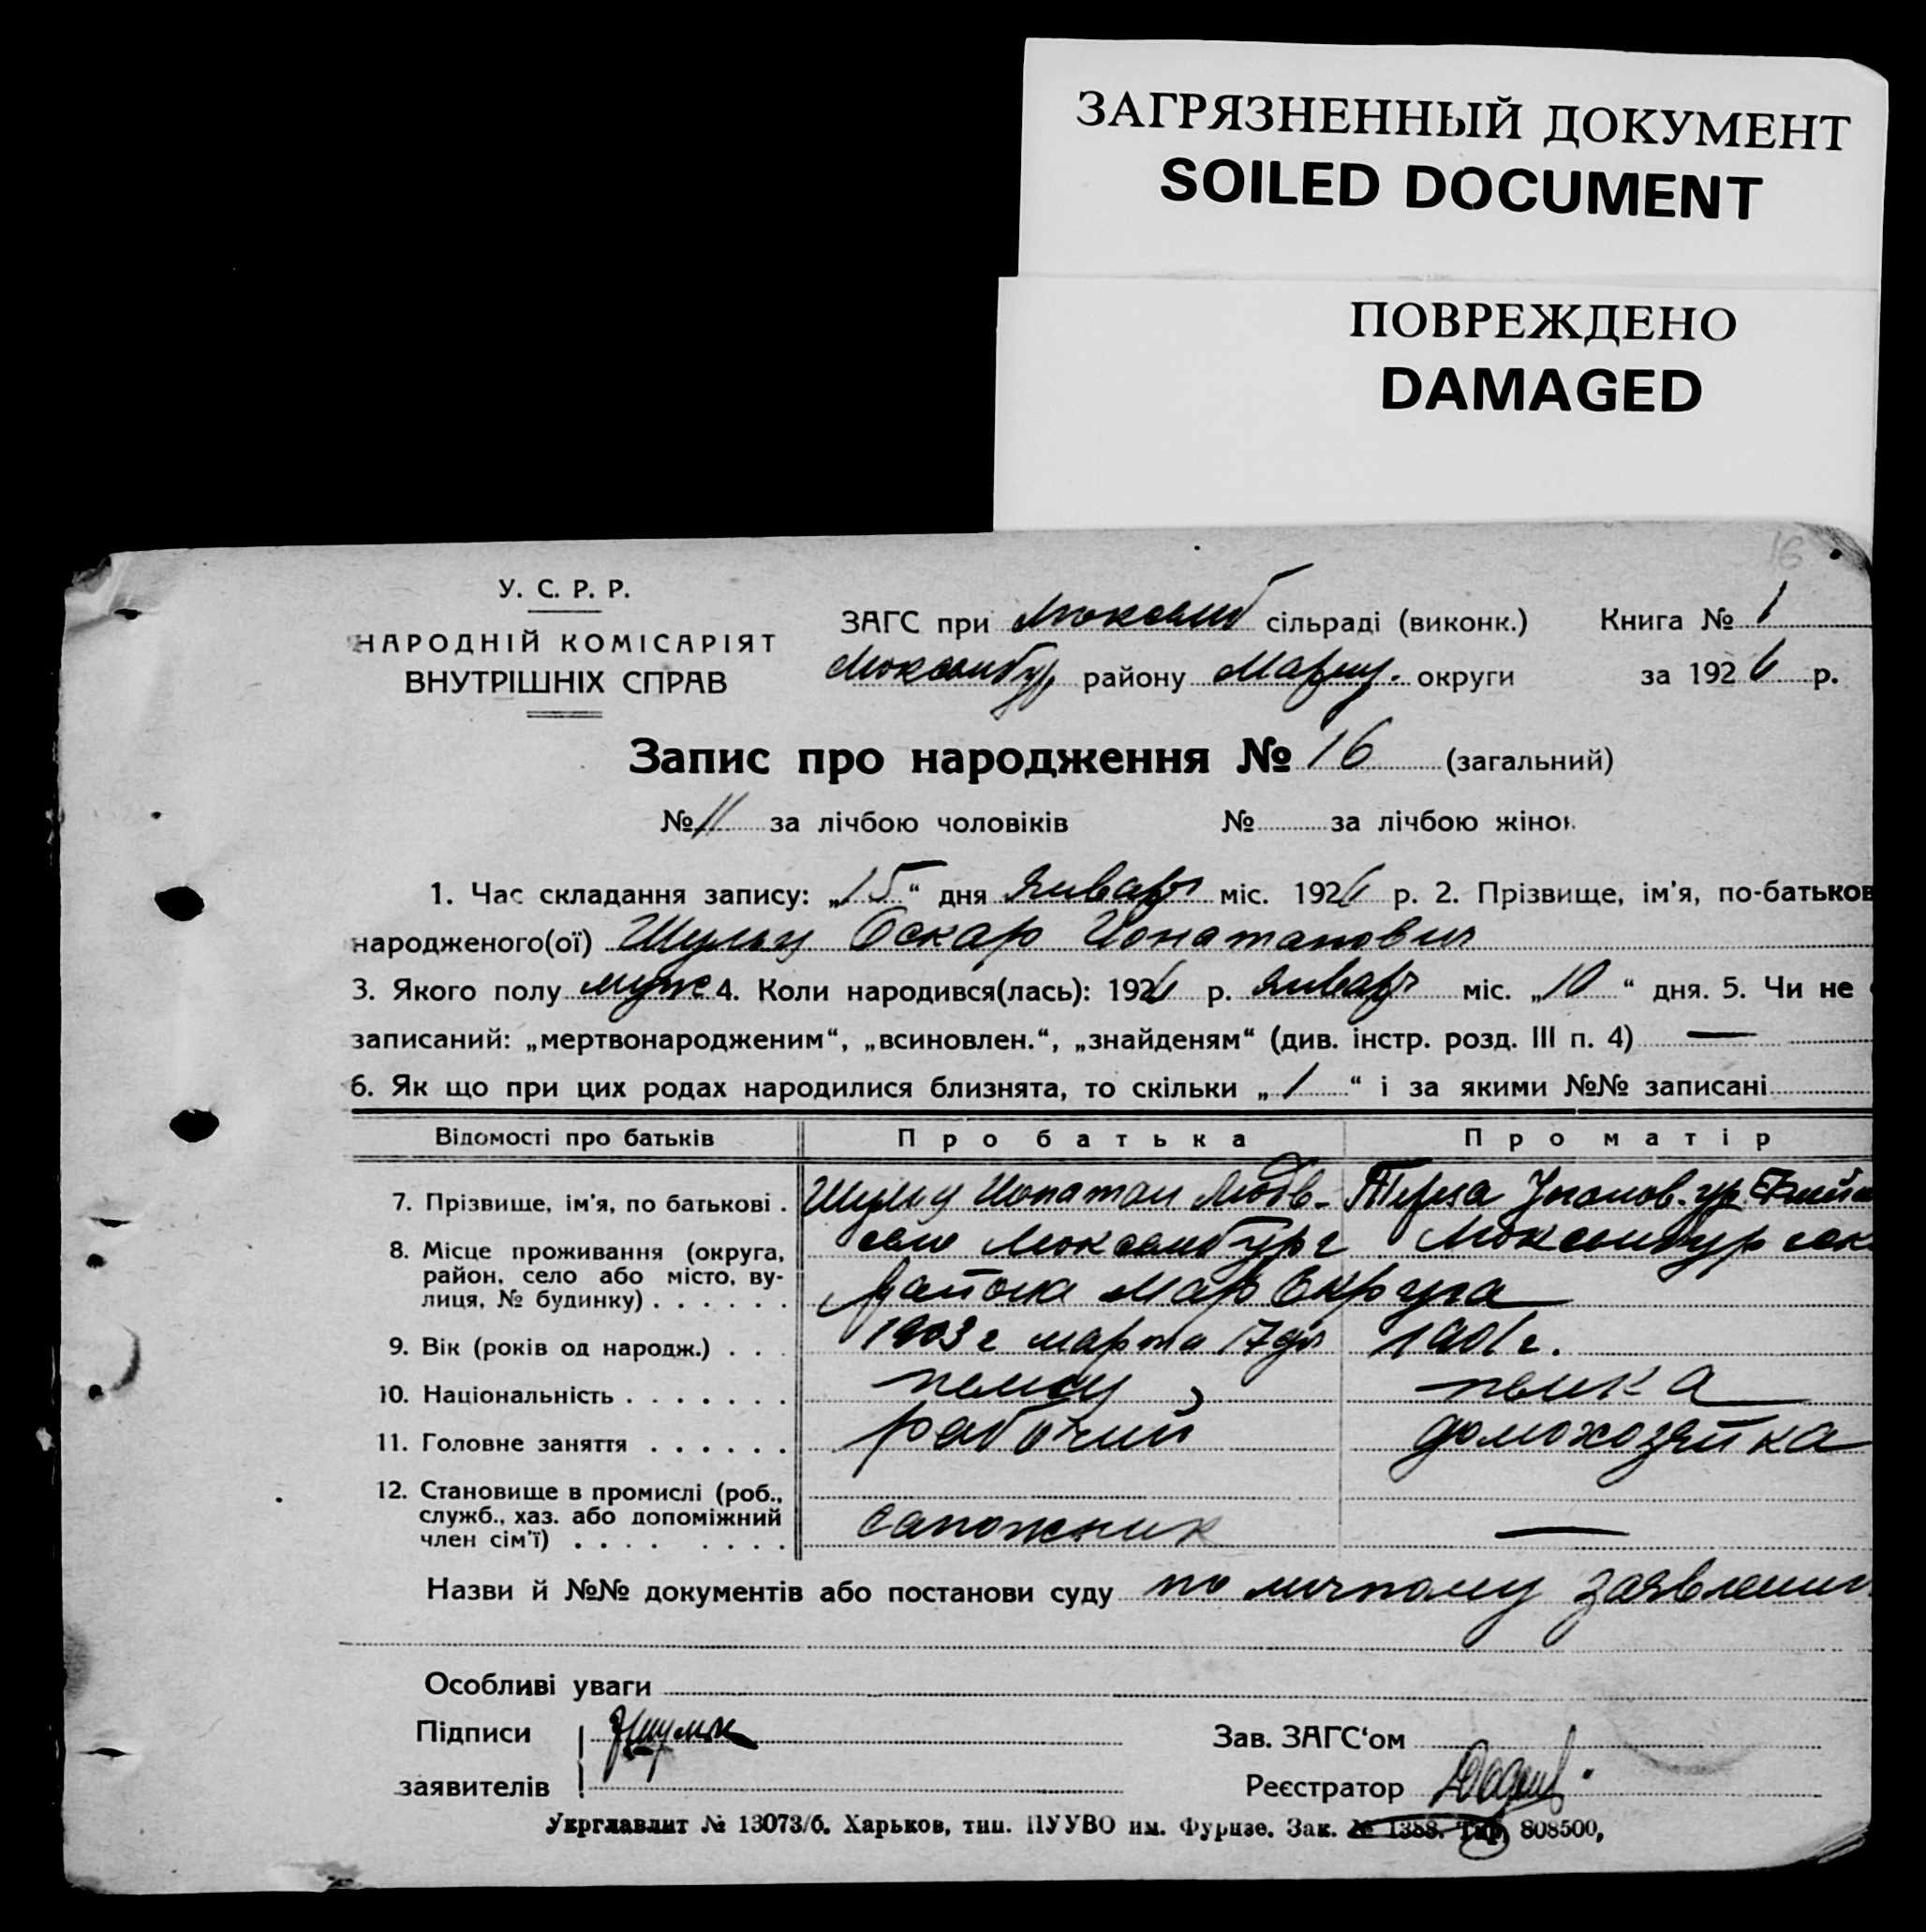 ЗАГРЯЗНЕННЫЙ ДОКУМЕНТ
SOILED DOCUMENT
ПОВРЕЖДЕНО
DAMAGED
16
У. С. Р. Р.
НАРОДНІЙ КОМІСАРІЯТ
ВНУТРІШНІХ СПРАВ
ЗАГС при Люксемб сільраді (виконк.) Книга № 1
Люксембур району Мариу. округи за 1926 р.
Запис про народження № 16 (загальний)
№ 11 за лічбою чоловіків № за лічбою жінок
1. Час складання запису: „15“ дня Января міс. 1926 р. 2. Прізвище, ім'я, по-батьков
народженого(ої) Шульц Оскар Ионатанович
3. Якого полу муж 4. Коли народився(лась): 1926 р. Января міс. „10“ дня. 5. Чи не
записаний: „мертвонародженим“, „всиновлен.“, „знайденям“ (див. інстр. розд. III п. 4) —
6. Як що при цих родах народилися близнята, то скільки „1“ і за якими №№ записані
Відомості про батьків Про батька Про матір
7. Прізвище, ім'я, по батькові . Шульц Ионатан Людв- Тереза
8. Місце проживання (округа, село Люксембург Люксембург
район, село або місто, ву- района Мар Округа
лиця, № будинку) . . . . . .
9. Вік (років од народж.) . . . 1903 г марта 17 дня 1901 г.
10. Національність . . . . . . . немец немка
11. Головне заняття . . . . . . рабочий домохозяйка
12. Становище в промислі (роб.,
служб., хаз. або допоміжний сапожник —
член сім'ї) . . . . . . . .
Назви й №№ документів або постанови суду по личному заявлению
Особливі уваги
Підписи Зав. ЗАГС‘ом
заявителів Реєстратор
Укрглавлит № 13073/б. Харьков, тип. ПУУВО им. Фрунзе. Зак. № 1388. Тир. 808500,